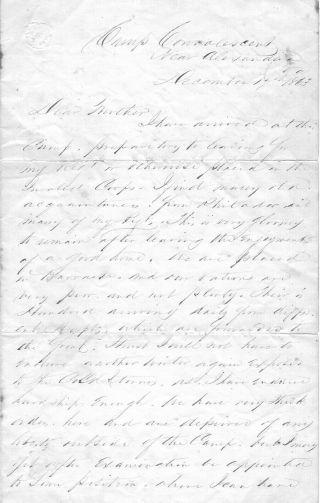 Camp Convalescent
Near Alexandria
December 19th 1863
Dear Mother
I have arrived at this
Camp. preparatory to leaving for
my Reg't or otherwise placed in the
Invalid Corps. I find many old
acquaintances from Philada
many of my Regt. This is very gloomy
to remain after leaving the enjoyments
of a good home. We are placed
in Barracks. And our rations are
very poor and not plenty. Their is
Hundred arriving daily from differ-
ent Hospitals which are forwarded to
the front. I trust I will not have to
endure another winter again Exposed
to the Cold Storms. as I have endured
hardship Enough. We have very strick
orders here and are deprived of any
liberty outside of the Camp. but I may
yet after Examination be appointed
to some position where I can have